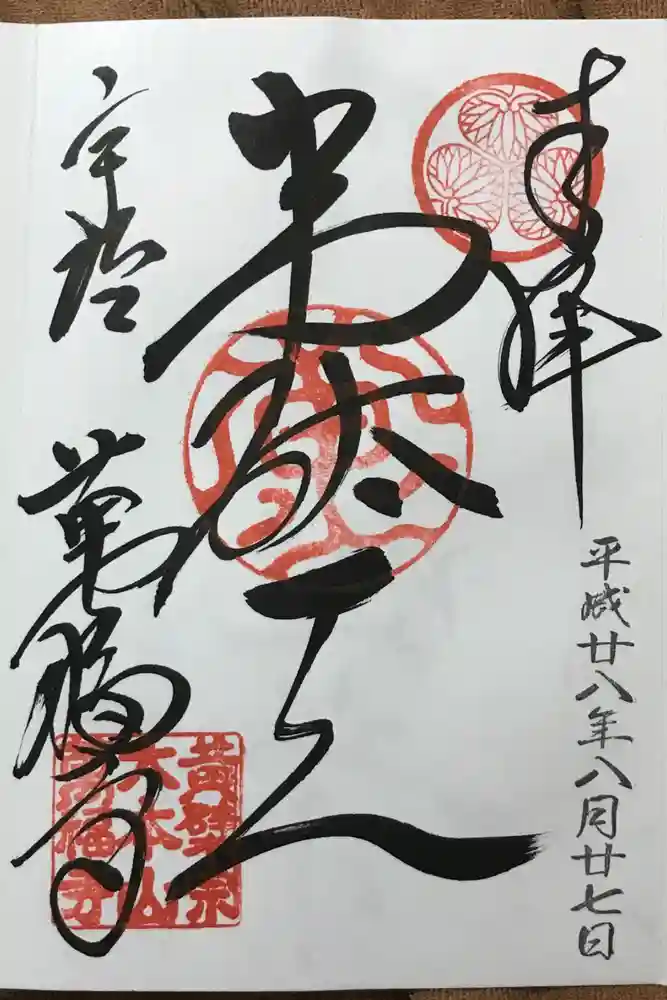 奉拝
平成廿八年八月廿七日
韋駄天
宇治
萬福寺
黄檗宗
大本山
萬福寺